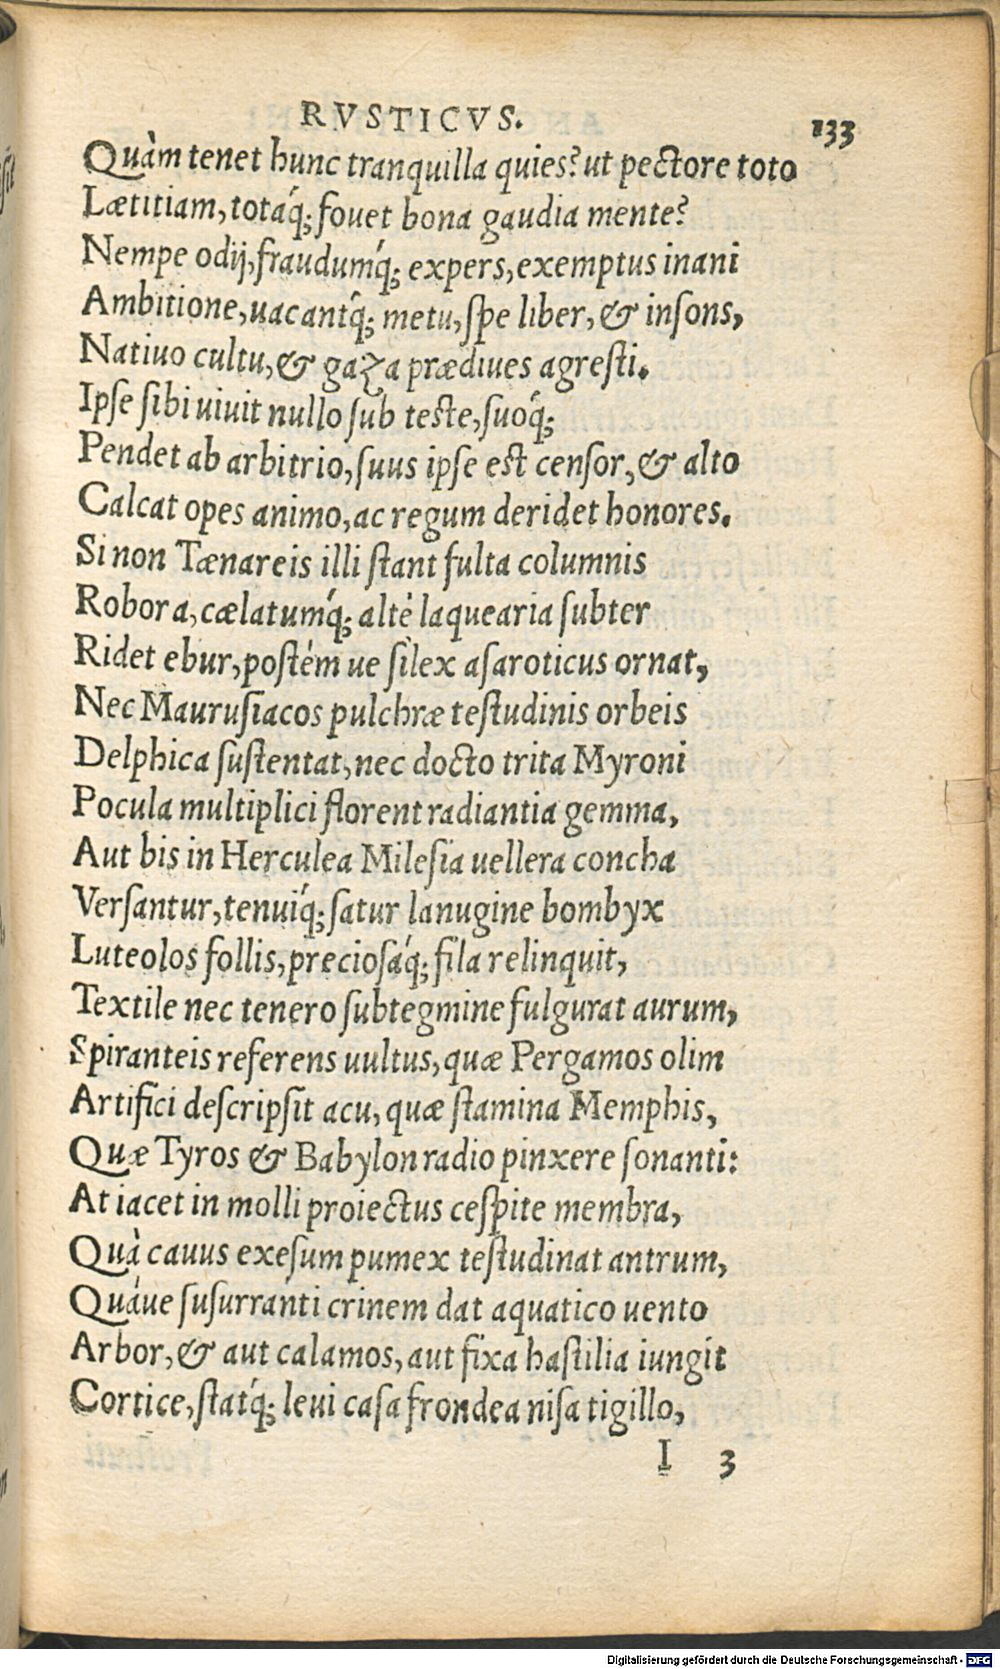 RVSTICVS. 133
Quàm tenet hunc tranquilla quies? ut pectore toto
Lætitiam, totáq́; fouet bona gaudia mente?
Nempe odij, fraudumq́; expers, exemptus inani
Ambitione, uacantq́; metu, ſpe liber, & inſons,
Natiuo cultu, & gaza prædiues agreſti.
Ipſe ſibi uiuit nullo ſub teſte, ſuoq́;
Pendet ab arbitrio, ſuus ipſe eſt cenſor, & alto
Calcat opes animo, ac regum deridet honores.
Si non Tænareis illi ſtant fulta columnis
Robora, cælatumq́; altè laquearia ſubter
Ridet ebur, poſtém ue ſilex aſaroticus ornat,
Nec Mauruſiacos pulchræ teſtudinis orbeis
Delphica ſuſtentat, nec docto trita Myroni
Pocula multiplici florent radiantia gemma,
Aut bis in Herculea Mileſia uellera concha
Verſantur, tenuiq́; ſatur lanugine bombyx
Luteolos follis, precioſáq́; fila relinquit,
Textile nec tenero ſubtegmine fulgurat aurum,
Spiranteis referens uultus, quæ Pergamos olim
Artifici deſcripſit acu, quæ ſtamina Memphis,
Quæ Tyros & Babylon radio pinxere ſonanti:
At iacet in molli proiectus ceſpite membra,
Quà cauus exeſum pumex teſtudinat antrum,
Quáue ſuſurranti crinem dat aquatico uento
Arbor, & aut calamos, aut fixa haſtilia iungit
Cortice, ſtatq́; leui caſa frondea niſa tigillo,
I 3
Digitalisierung gefördert durch die Deutsche Forschungsgemeinschaft - DFG